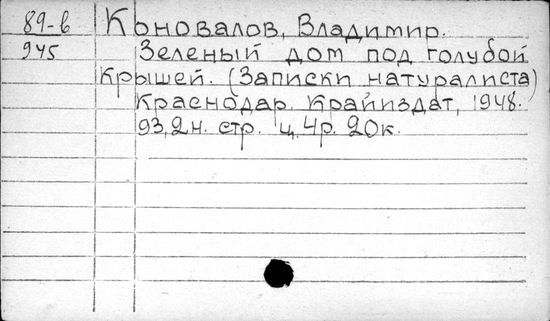 89-в Коновалов, Владимир.
945 Зеленый дом под голубой
крышей. (Записки натуралиста)
Краснодар. Крайиздат, 1948.
93,2н. стр. ц. 4р. 20к.